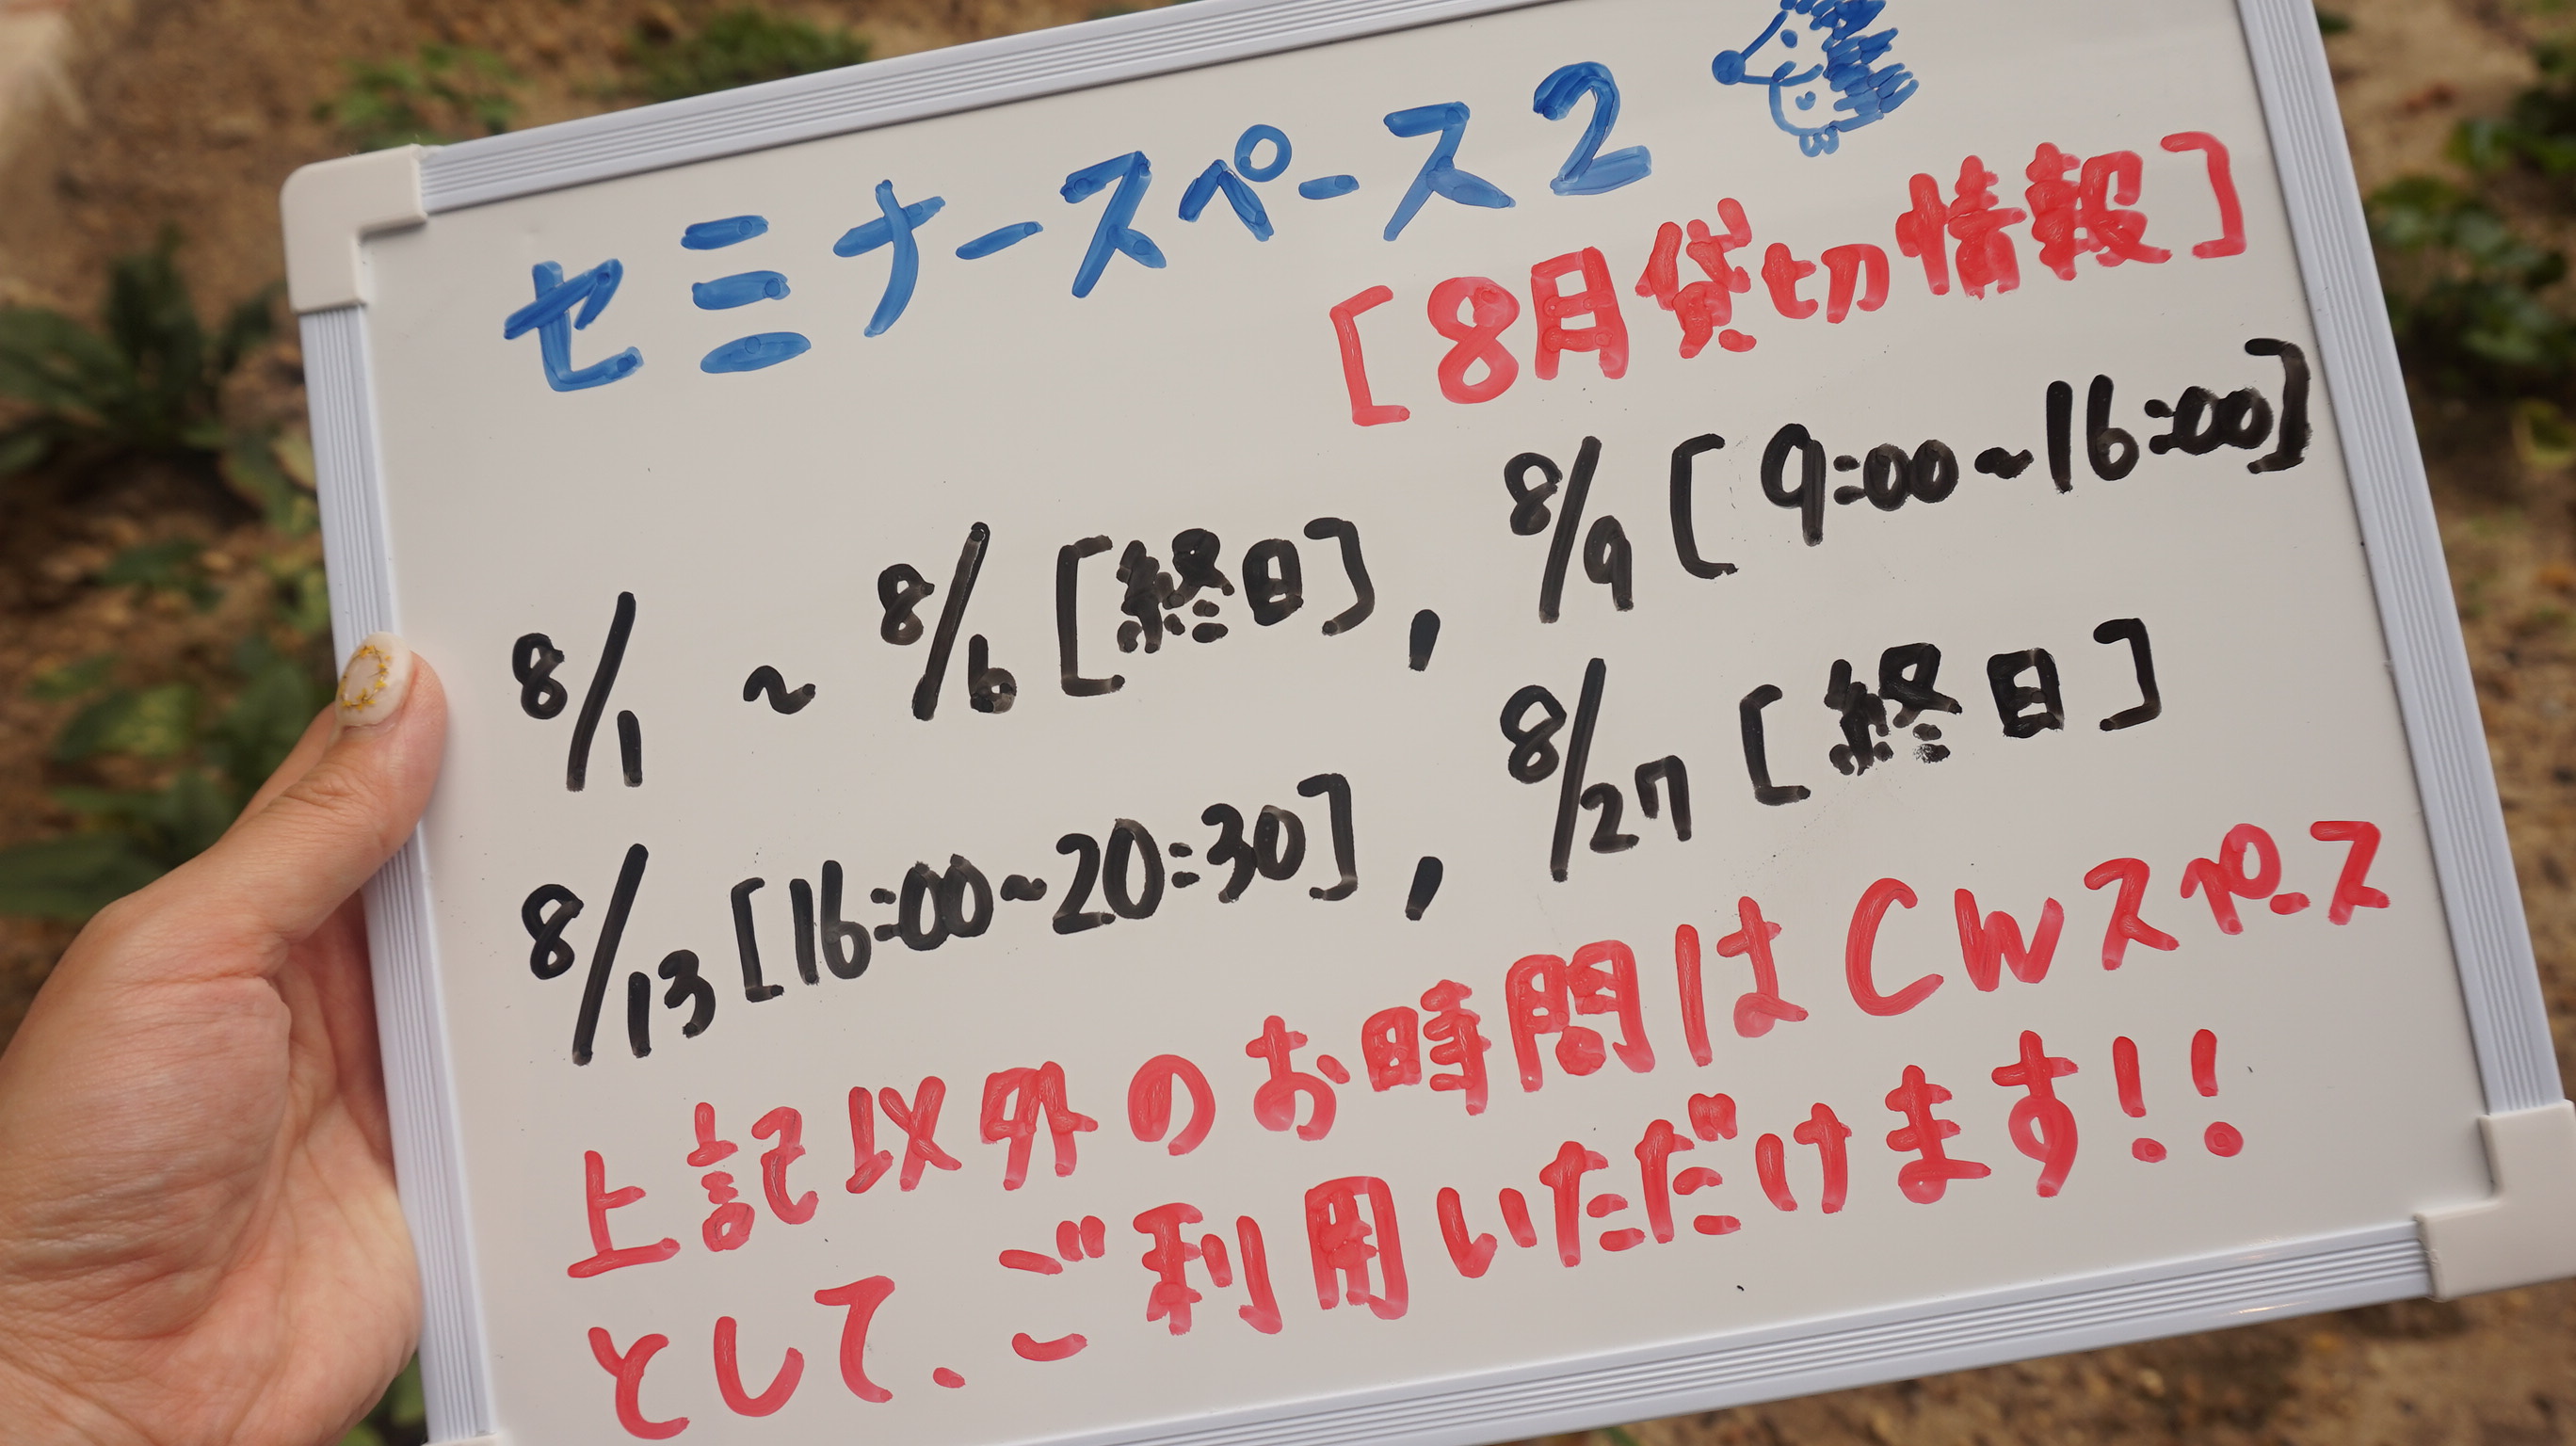 セミナースペース2
[8月貸切情報]
8/1 ~ 8/6 [終日], 8/9 [9:00~16:00]
8/13 [16:00~20:30], 8/27 [終日]
上記以外のお時間はCWスペース
として、ご利用いただけます!!